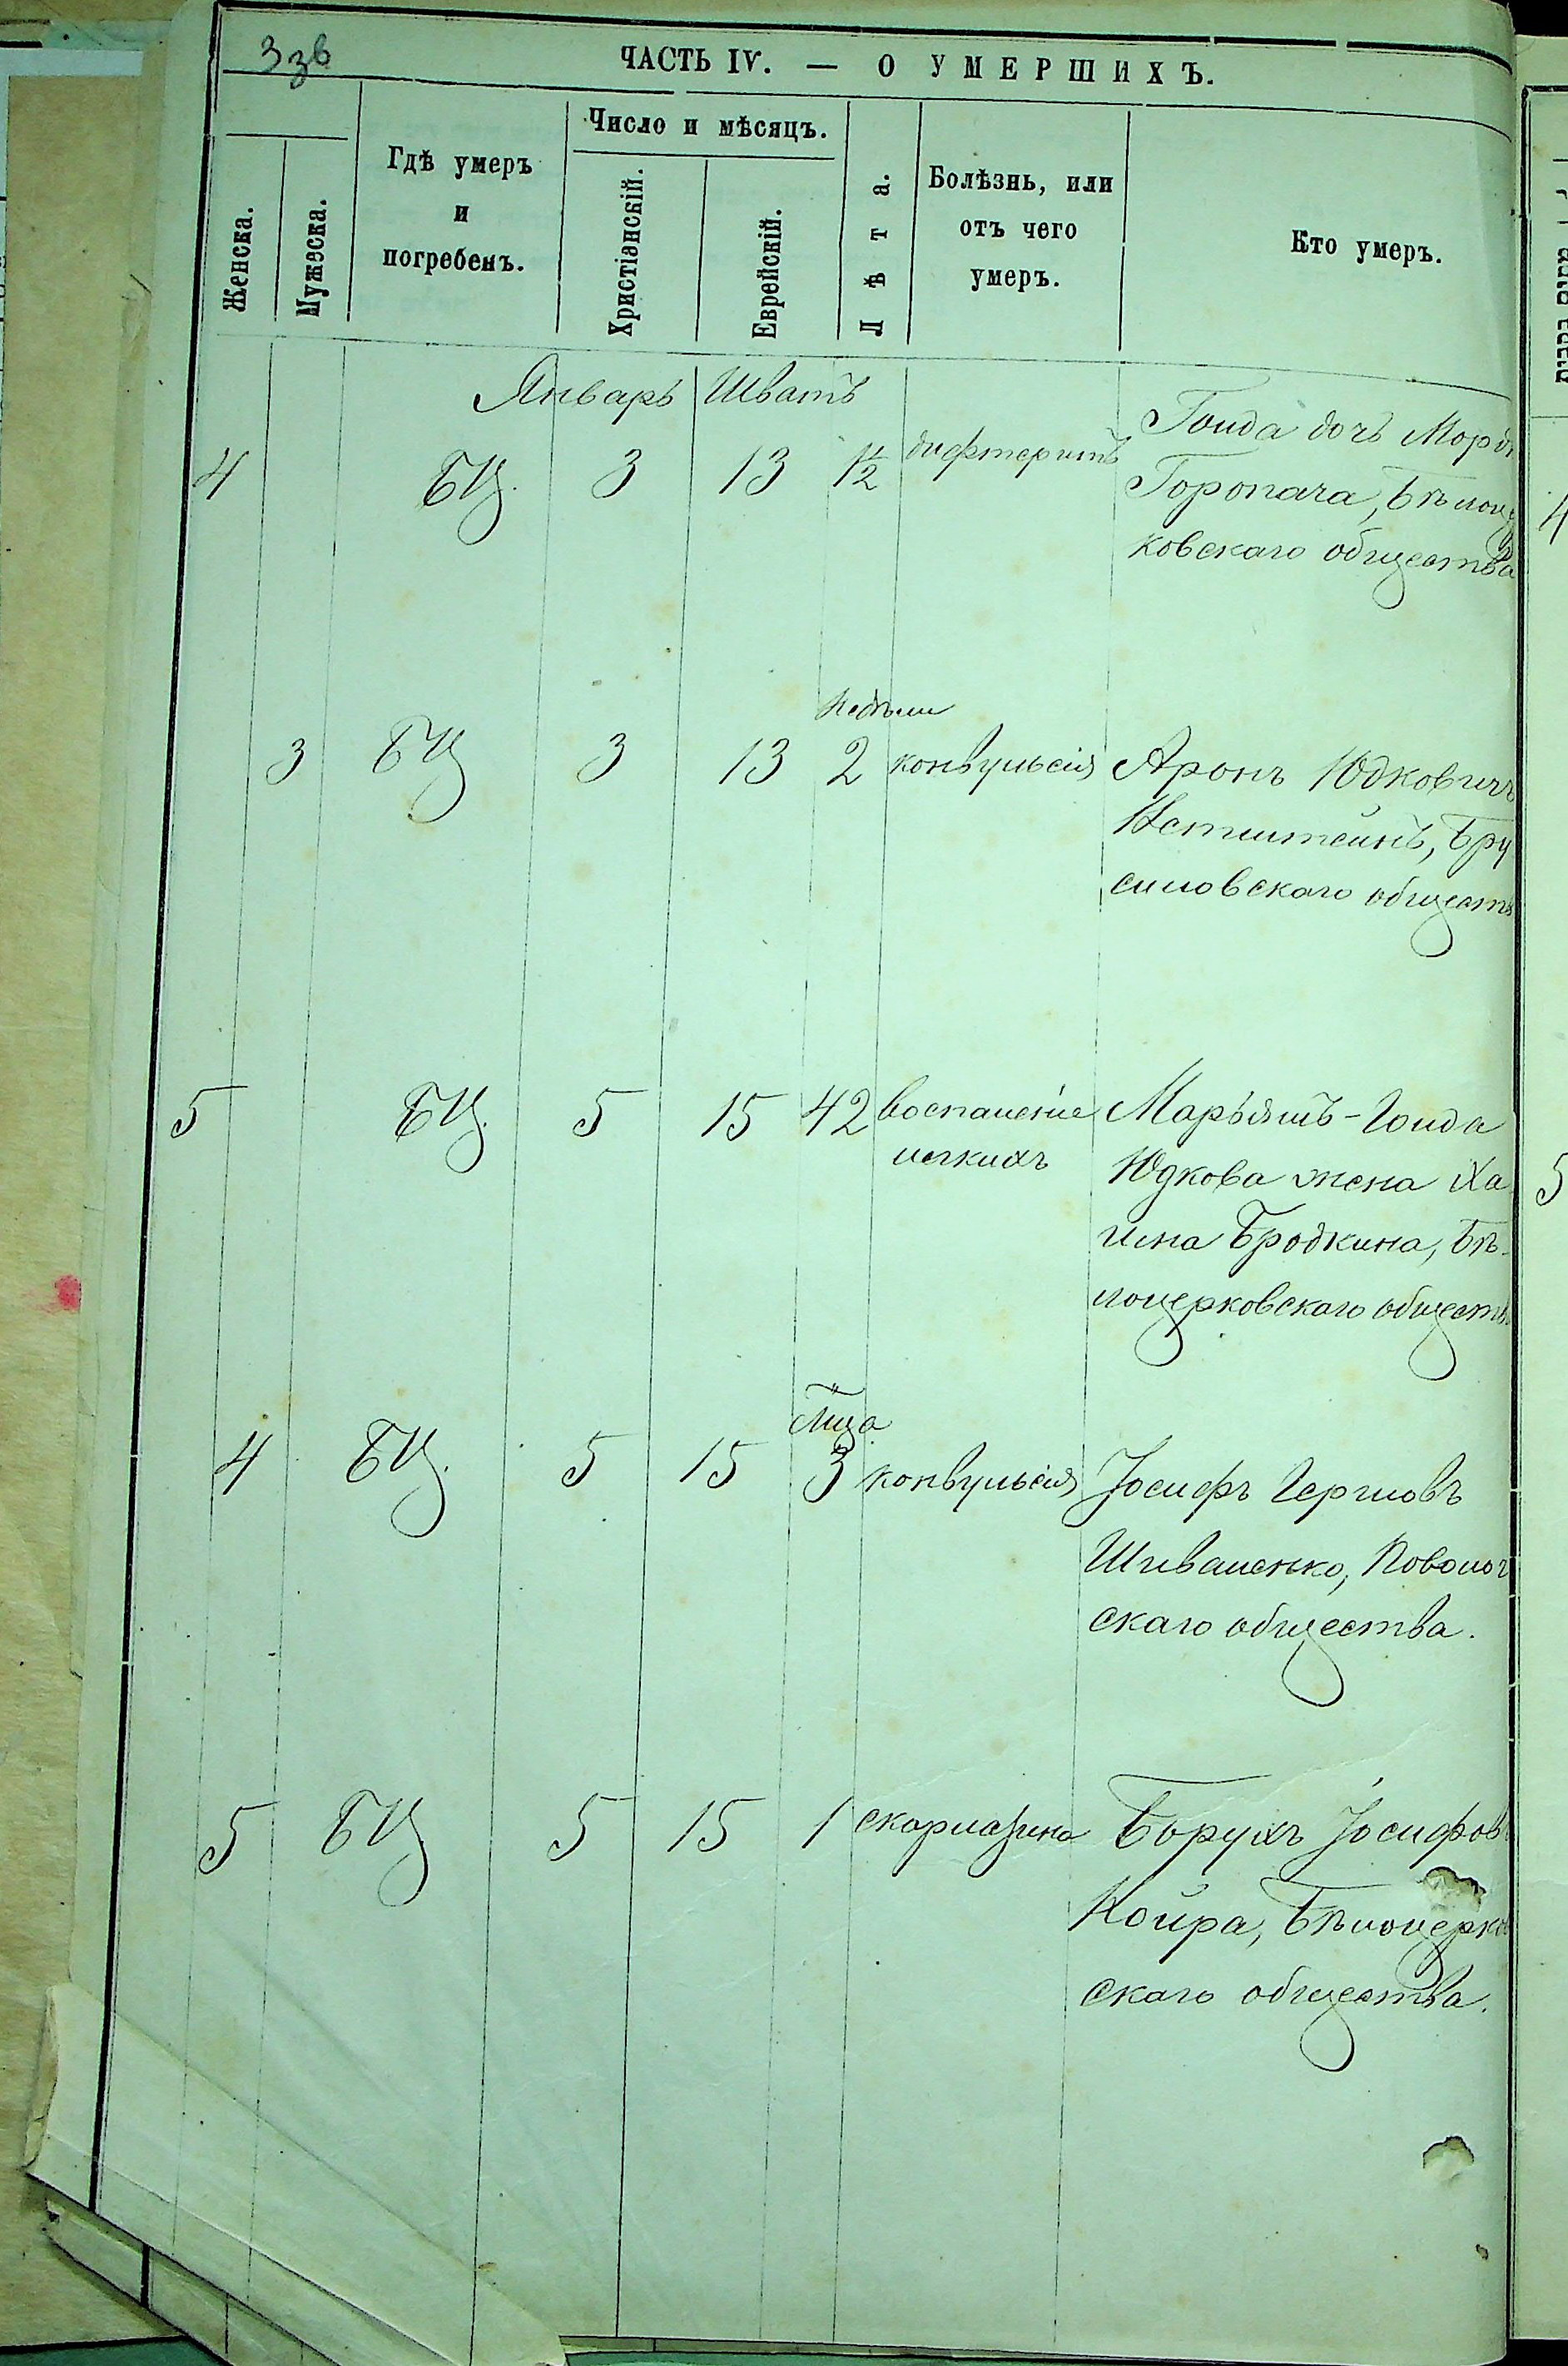 3зв
ЧАСТЬ IV. — О УМЕРШИХЪ.
Женска.
Мужеска.
Гдѣ умеръ
и
погребенъ.
Число и мѣсяцъ.
Христіанскій.
Еврейскій.
Лѣта.
Болѣзнь, или
отъ чего
умеръ.
Кто умеръ.
Январь Шватъ
4 БЦ. 3 13 1½ дифтеритъ Голда дочь Морд
Горопача, Бѣлоц
ковскаго общества
Недѣли
3 БЦ 3 13 2 конвульсія Аронъ Юдковичъ
Нетштейнъ, Бру
силовскаго обществ
5 БЦ. 5 15 42 воспаленіе Марьямъ-Голда
легкихъ Юдкова жена Ха
има Бродкина, Бѣ-
лоцерковскаго обществ
Мца
4 БЦ. 5 15 3 конвульсія Іосифъ Гершовъ
Шиваленко, Паволоч
скаго общества.
5 БЦ. 5 15 1 скарлатина Борухъ Іосифов
Койра, Бѣлоцерков
скаго общества.
4
5